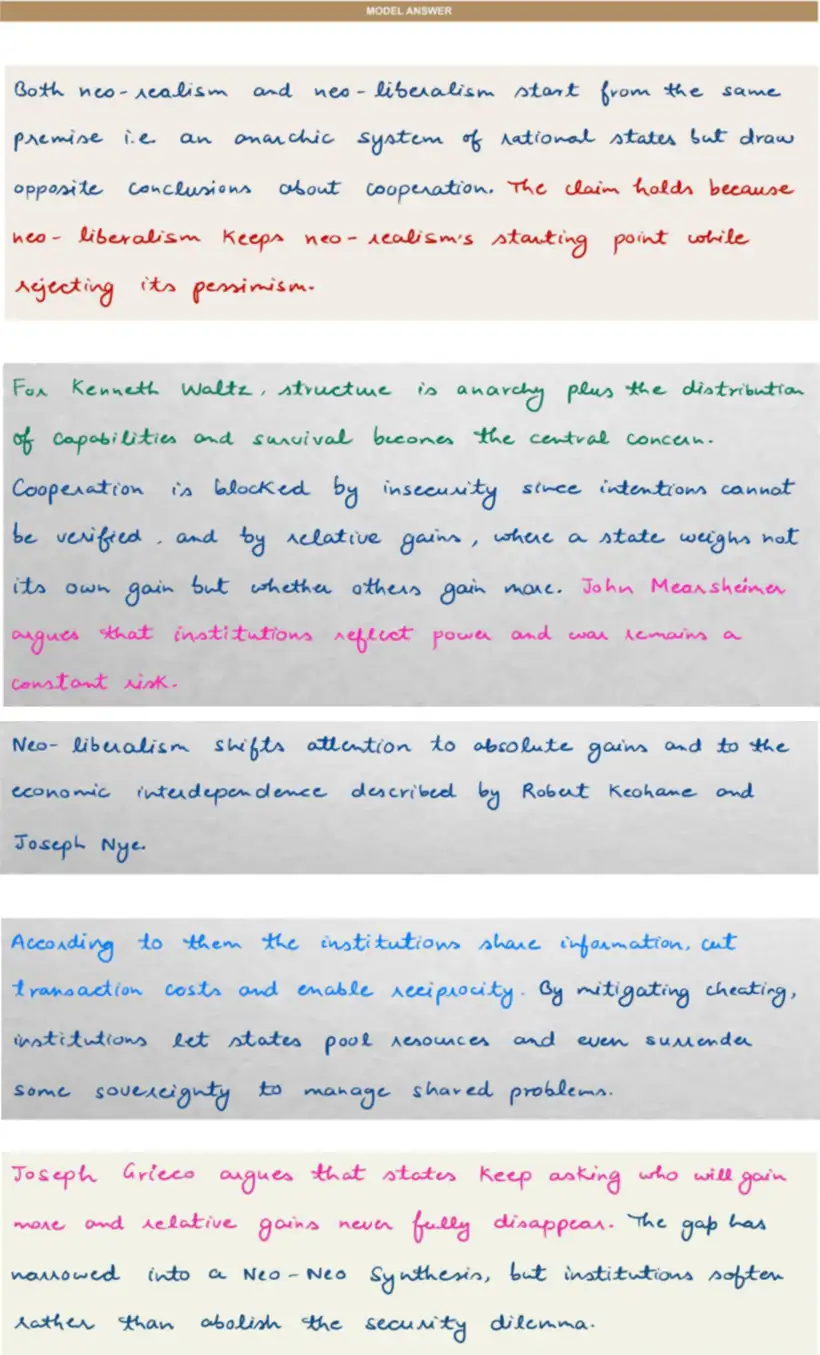 MODEL ANSWER
Both neo-realism and neo-liberalism start from the same
premise i.e. an anarchic system of rational states but draw
opposite conclusions about cooperation. The claim holds because
neo-liberalism keeps neo-realism's starting point while
rejecting its pessimism.
For Kenneth Waltz, structure is anarchy plus the distribution
of capabilities and survival becomes the central concern.
Cooperation is blocked by insecurity since intentions cannot
be verified, and by relative gains, where a state weighs not
its own gain but whether others gain more. John Mearsheimer
argues that institutions reflect power and war remains a
constant risk.
Neo-liberalism shifts attention to absolute gains and to the
economic interdependence described by Robert Keohane and
Joseph Nye.
According to them the institutions share information, cut
transaction costs and enable reciprocity. By mitigating cheating,
institutions let states pool resources and even surrender
some sovereignty to manage shared problems.
Joseph Grieco argues that states keep asking who will gain
more and relative gains never fully disappear. The gap has
narrowed into a Neo-Neo Synthesis, but institutions soften
rather than abolish the security dilemma.